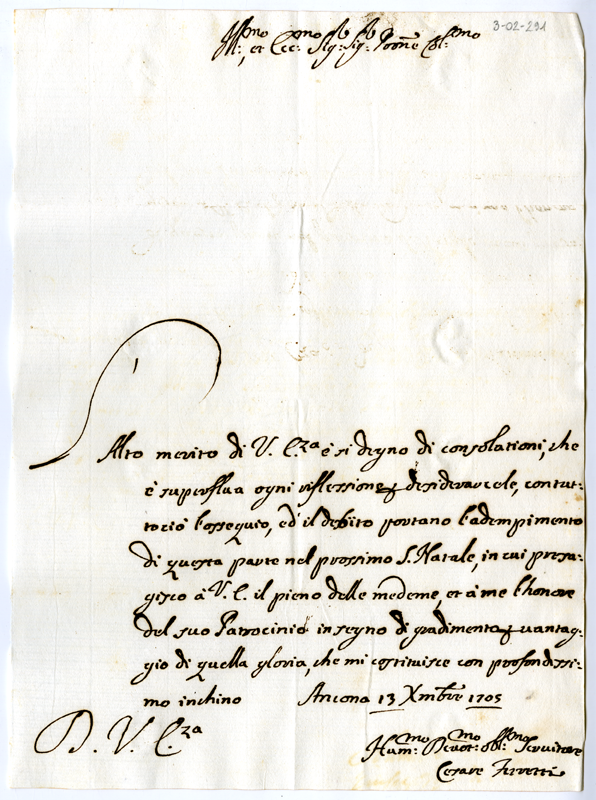 3-02-291
Ill:mo et Ecc:mo Sig:r Sig:r Prone Col:mo
L'Alto merito di V. E.za è si degno di consolationi, che
è superflua ogni riflessione p desiderarcele, contut=
tociò l'ossequio, ed il debito portano l'adempimento
di questa parte nel prossimo S. Natale, in cui presa=
gisco à V. E. il pieno delle medeme, et à me l'honore
del suo Patrocinio in segno di gradimento p vantag=
gio di quella gloria, che mi costituisce con profondissi=
mo inchino Ancona 13 Xmbre 1705
D. V. E.za
Hum:mo Devot:mo Obl:mo Servitore
Cesare Ferretti